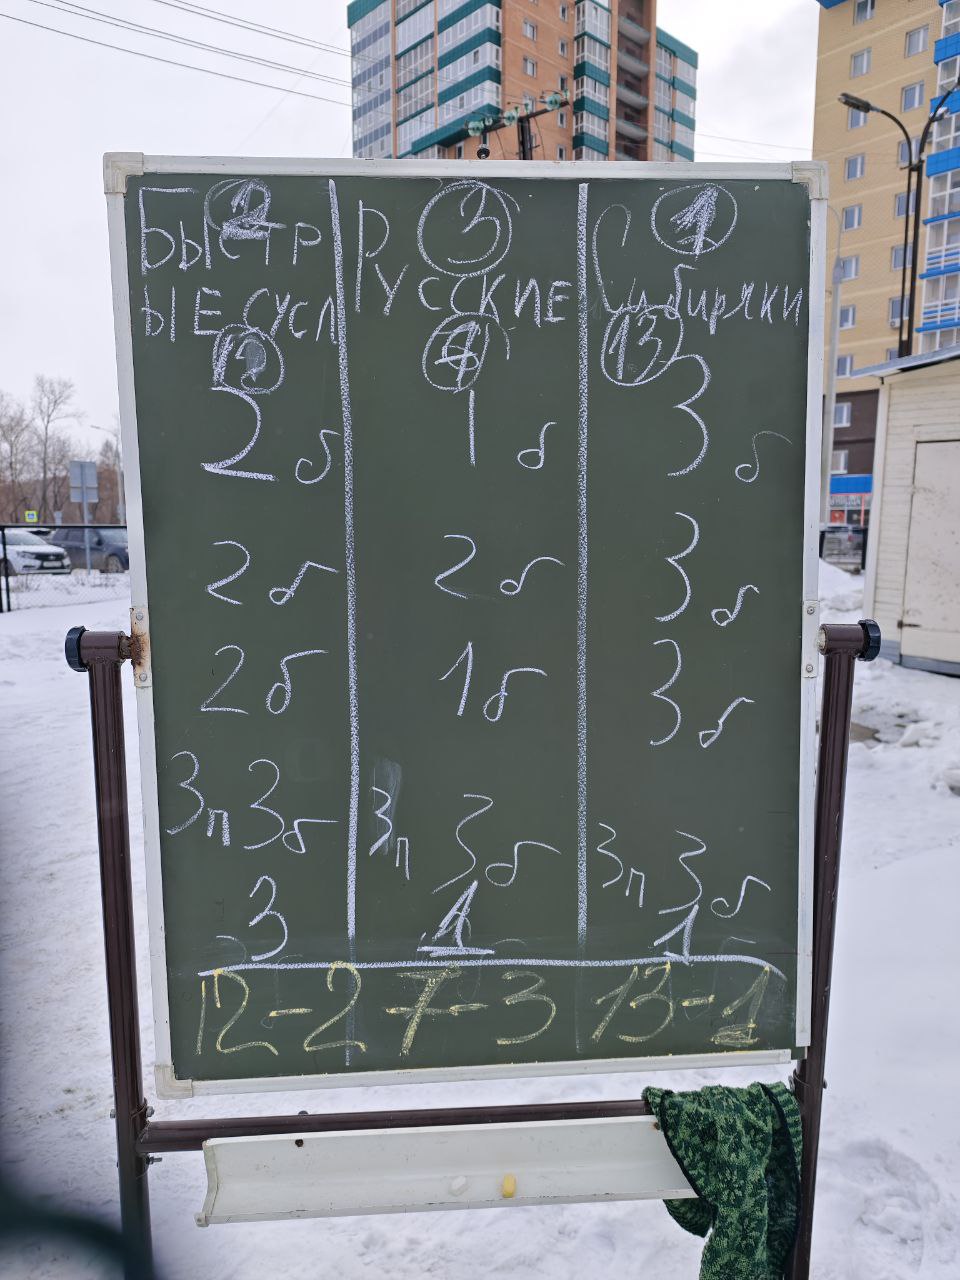 2 3 1
БЫСТР РУССКИЕ Сибиряки
ЫЕ СУСЛ
7 13
2 б 1 б 3 б
2 б 2 б 3 б
2 б 1 б 3 б
3п 3 б 3п 3 б 3п 3 б
3 1 1
12-2 7-3 13-1